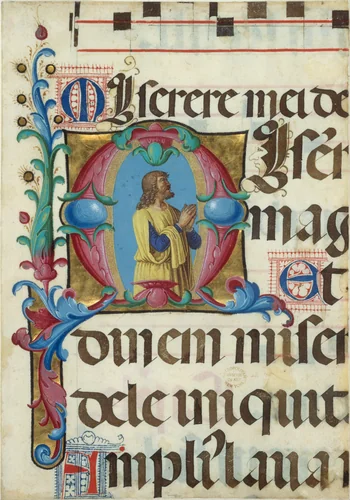 Miserere mei de
Miser
mag
Et
dinem miser
dele iniquit
Ampli' lava